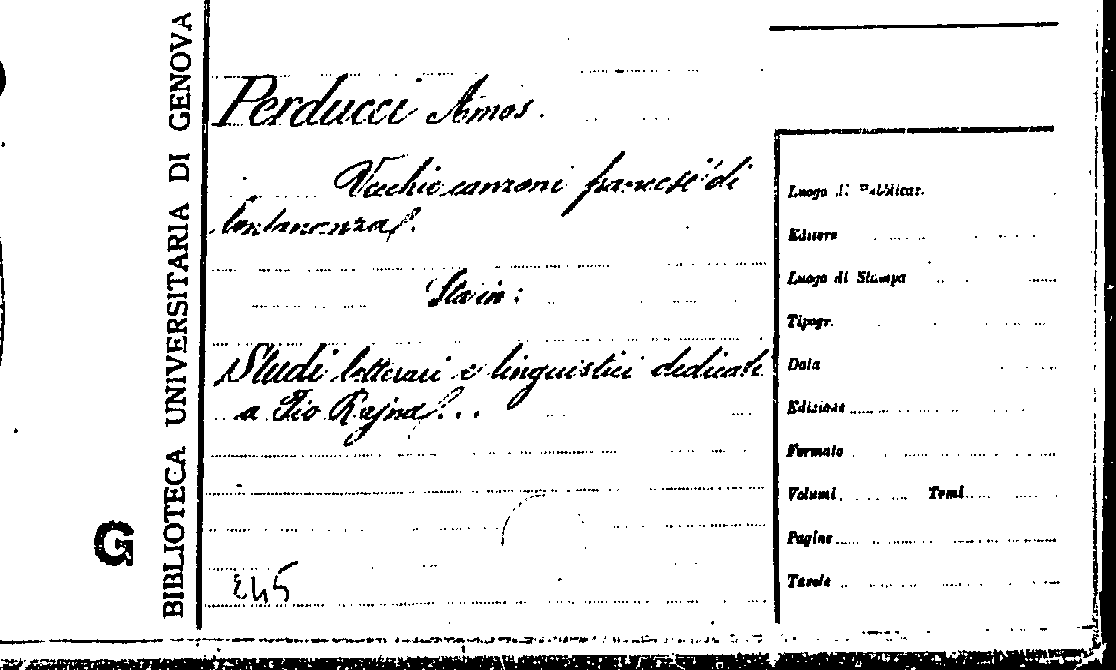 BIBLIOTECA UNIVERSITARIA DI GENOVA
G
Perducci Amos.
Vecchie canzoni francesi di
lontananza.
Sta in:
Studi letterari e linguistici dedicati
a Pio Rajna...
245
Luogo di Pubblicaz.
Editore
Luogo di Stampa
Tipogr.
Data
Edizione
Formato
Volumi Tomi
Pagine
Tavole